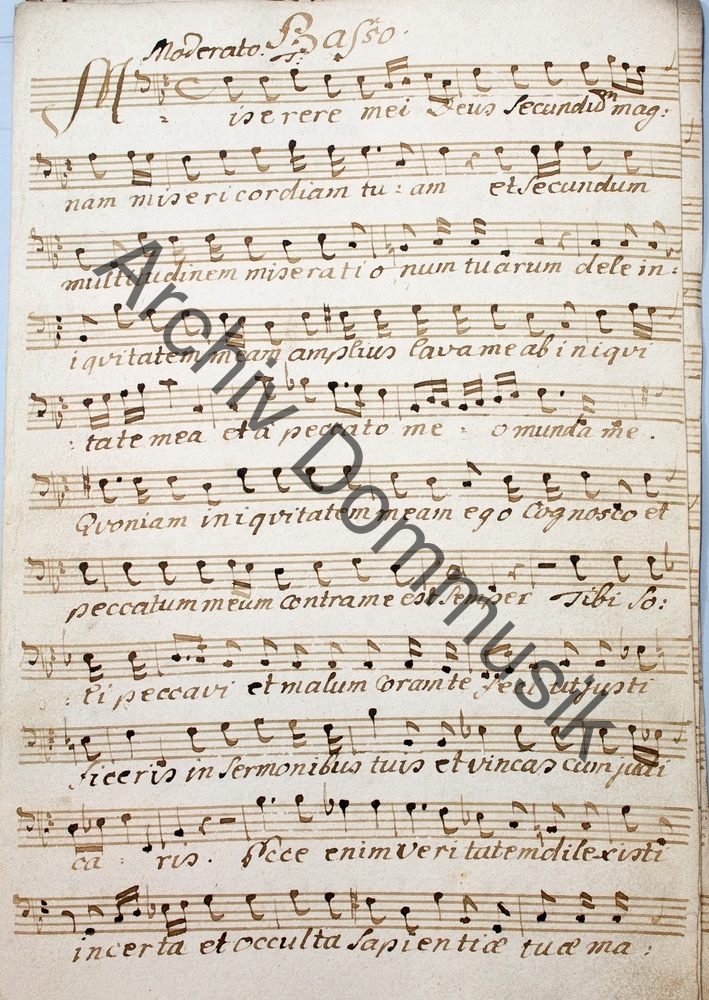 Moderato. Basso.
Miserere mei Deus secundum mag:
nam misericordiam tu: am et secundum
multitudinem miserationum tuarum dele in:
iqvitatem meam amplius lava me ab iniqvi
: tate mea et a peccato me : o munda me.
Qvoniam iniqvitatem meam ego Cognosco et
peccatum meum Contra me est semper Tibi so:
: li peccavi et malum Coram te feci ut justi
ficeris in sermonibus tuis et vincas cum judi
ca : ris. Ecce enim veritatem dilexisti
incerta et occulta sapientiæ tuæ ma:
Archiv Dommusik